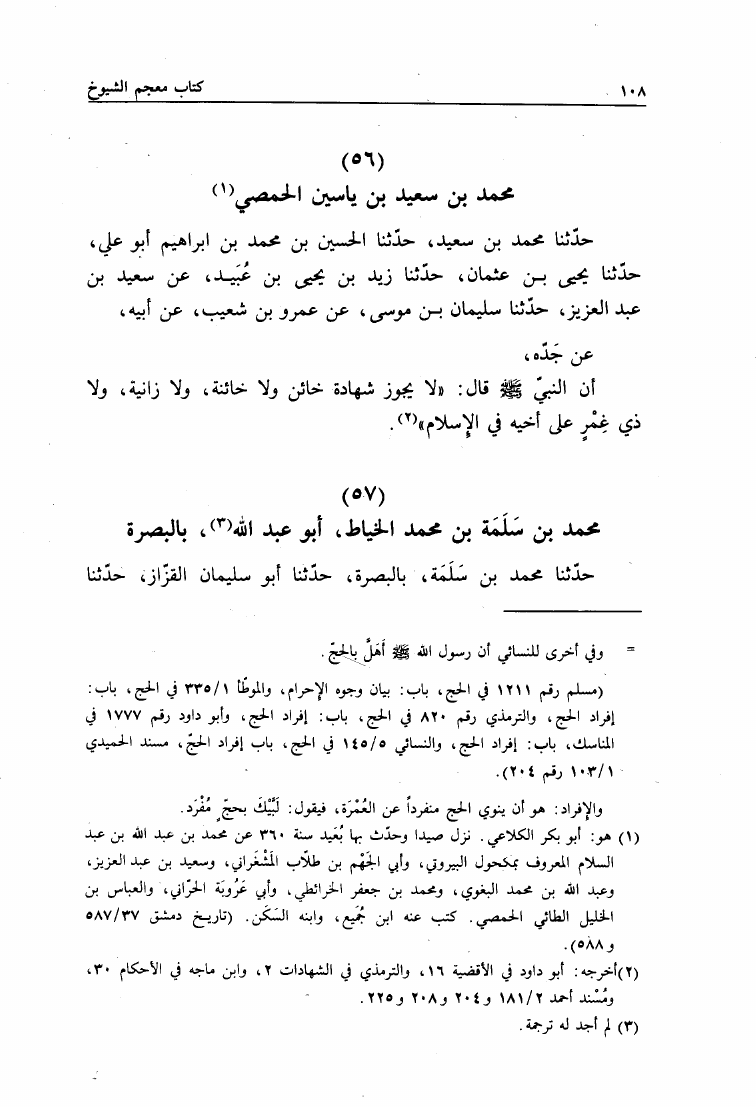 ١٠٨ كتاب معجم الشيوخ
(٥٦)
محمد بن سعيد بن ياسين الحمصي(١)
حدّثنا محمد بن سعيد، حدّثنا الحسين بن محمد بن ابراهيم أبو علي،
حدّثنا يحيى بـن عثمان، حدّثنا زيد بن يحيى بن عُبَيـد، عن سعيد بن
عبد العزيز، حدّثنا سليمان بـن موسى، عن عمرو بن شعيب، عن أبيه،
عن جَدّه،
أن النبيّ ﷺ قال: «لا يجوز شهادة خائن ولا خائنة، ولا زانية، ولا
ذي غِمْرٍ على أخيه في الإسلام»(٢).
(٥٧)
محمد بن سَلَمَة بن محمد الخياط، أبو عبد الله(٣)، بالبصرة
حدّثنا محمد بن سَلَمَة، بالبصرة، حدّثنا أبو سليمان القزّاز، حدّثنا
= وفي أخرى للنسائي أن رسول الله ﷺ أَهَلَّ بِالحجّ.
(مسلم رقم ١٢١١ في الحج، باب: بيان وجوه الإحرام، والموطّأ ٣٣٥/١ في الحج، باب:
إفراد الحج، والترمذي رقم ٨٢٠ في الحج، باب: إفراد الحج، وأبو داود رقم ١٧٧٧ في
المناسك، باب: إفراد الحج، والنسائي ١٤٥/٥ في الحج، باب إفراد الحجّ، مسند الحميدي
١٠٣/١ رقم ٢٠٤).
والإفراد: هو أن ينوي الحج منفرداً عن العُمْرَة، فيقول: لَبَّيْكَ بحجّ مُفْرَد.
(١) هو: أبو بكر الكلاعي. نزل صيدا وحدّث بها بُعَيد سنة ٣٦٠ عن محمد بن عبد الله بن عبد
السلام المعروف بمكحول البيروتي، وأبي الجَهْم بن طلّاب المَشْغَراني، وسعيد بن عبد العزيز،
وعبد الله بن محمد البغوي، ومحمد بن جعفر الخرائطي، وأبي عَرُوبَة الحرّاني، والعباس بن
الخليل الطائي الحمصي. كتب عنه ابن جُمَيع، وابنه السَكَن. (تاريخ دمشق ٥٨٧/٣٧
و ٥٨٨).
(٢) أخرجه: أبو داود في الأقضية ١٦، والترمذي في الشهادات ٢، وابن ماجه في الأحكام ٣٠،
ومُسْند أحمد ١٨١/٢ و ٢٠٤ و ٢٠٨ و ٢٢٥.
(٣) لم أجد له ترجمة.